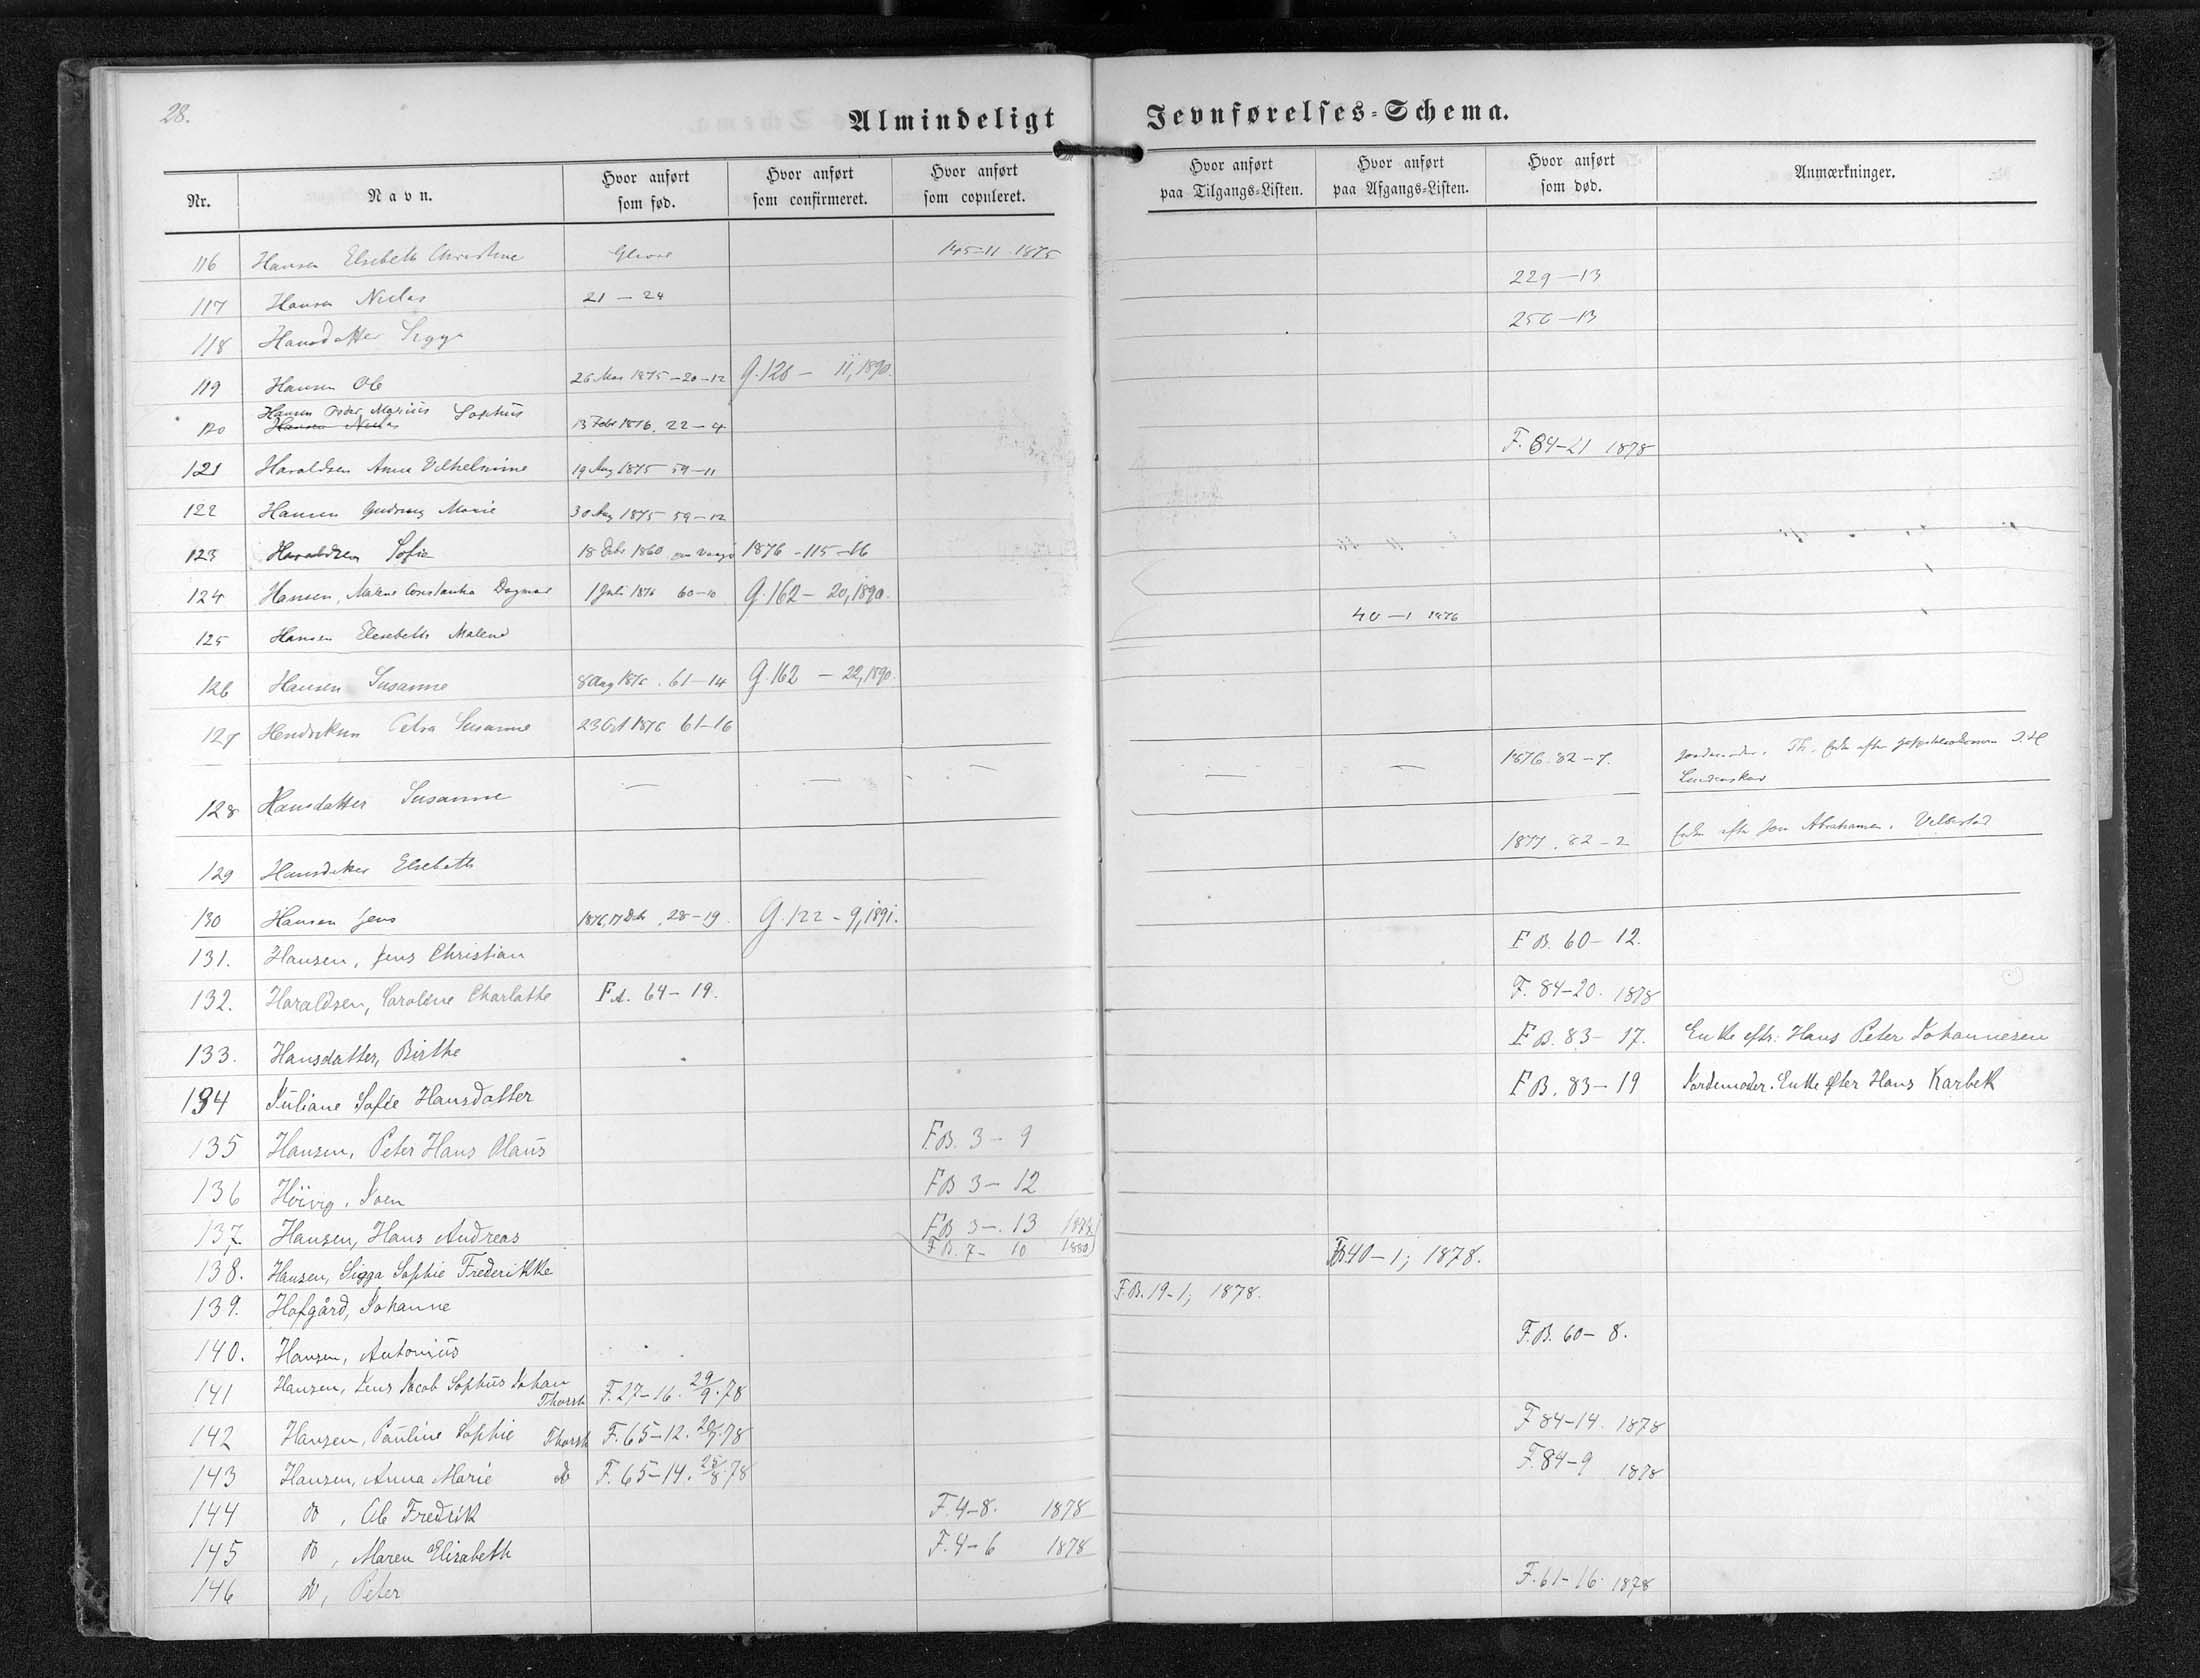 28.
Almindeligt Jevnførelses-Schema.
Nr. Navn. Hvor anført som fød. Hvor anført som confirmeret. Hvor anført som copuleret. Hvor anført paa Tilgangs-Listen. Hvor anført paa Afgangs-Listen. Hvor anført som død. Anmærkninger.
116 Hansen Elsebeth Christine 145-11 1875
117 Hansen Niclas 21-24 229-13
118 Hansdatter Sigga 250-13
119 Hansen Ole 26 Mar 1875-20-12 G. 126- 11, 1890.
120 Hansen Peder Marius Sophus 13 Febr 1876. 22-4
Hansen Niclas
121 Haraldsen Anna Vilhelmine 19 Aug 1875 59-11 F. 84-21 1878
122 Hansen Marie 30 Aug 1875 59-12
123 Haraldsen Sofie 18 Debr 1860 1876-115-16
124 Hansen, Malene Constantia Dagmar 1 Juli 1876 60-10 G. 162- 20, 1890.
125 Hansen Elsebeth Malene 40-1 1876
126 Hansen Susanne 8 Aug 1876. 61-14 G. 162 - 22, 1890.
127 Hendriksen Petra Susanne 23 Oct 1876 61-16
128 Hansdatter Susanne — — — — — 1876. 82-7. Jordemoder. Th. Enke efter
129 Hansdatter Elsebeth 1877. 82-2 Enke efter Abrahamsen. Velbestad
130 Hansen Jens 1876, 17 Debr. 28-19. G. 122-9, 1891.
131. Hansen, Jens Christian F B. 60-12.
132. Haraldsen, Caroline Charlotte F A. 64-19. F. 84-20. 1878
133. Hansdatter, Birthe F B. 83-17. Enke eftr. Hans Peter Johannesen
134 Juliane Sofie Hansdatter F B. 83-19 Jordemoder. Enke efter Hans Karbek
135 Hansen, Peter Hans Olaus F.B. 3-9
136 Höivig, Joen F B 3-12
137. Hansen, Hans Andreas F B 3-13
F. B. 7- 10 1880
138. Hansen, Sigga Sophie Frederikke F.B. 40-1; 1878.
139. Hofgård, Johanne F.B. 19-1; 1878.
140. Hansen, Antonius F.B. 60-8.
141 Hansen, Jens Jacob Sophus Johan Thorsh F. 27-16. 29/9. 78
142 Hansen, Pauline Sophie Thorsh F. 65-12. 78 F 84-14. 1878
143 Hansen, Anna Marie do F. 65-14. 78 F. 84-9 1878
144 do, Ole Fredrik F. 4-8. 1878
145 do, Maren Elisabeth F. 4-6 1878
146 do, Peter F. 61-16. 1878